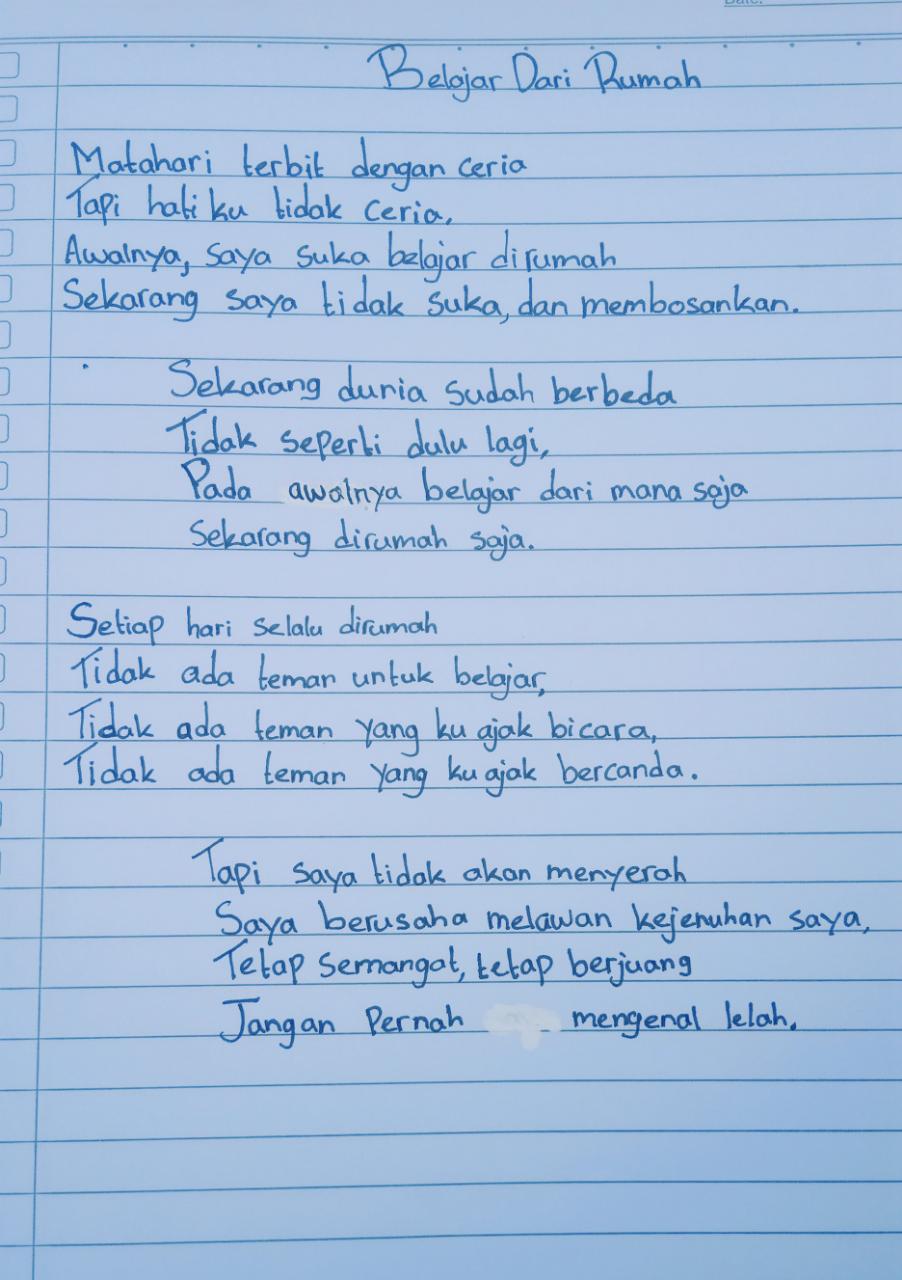 Belajar Dari Rumah
Matahari terbit dengan ceria
Tapi hati ku tidak ceria,
Awalnya, saya suka belajar dirumah
Sekarang saya tidak suka, dan membosankan.
Sekarang dunia sudah berbeda
Tidak seperti dulu lagi,
Pada awalnya belajar dari mana saja
Sekarang dirumah saja.
Setiap hari selalu dirumah
Tidak ada teman untuk belajar,
Tidak ada teman yang ku ajak bicara,
Tidak ada teman yang ku ajak bercanda.
Tapi saya tidak akan menyerah
Saya berusaha melawan kejenuhan saya,
Tetap semangat, tetap berjuang
Jangan Pernah mengenal lelah.